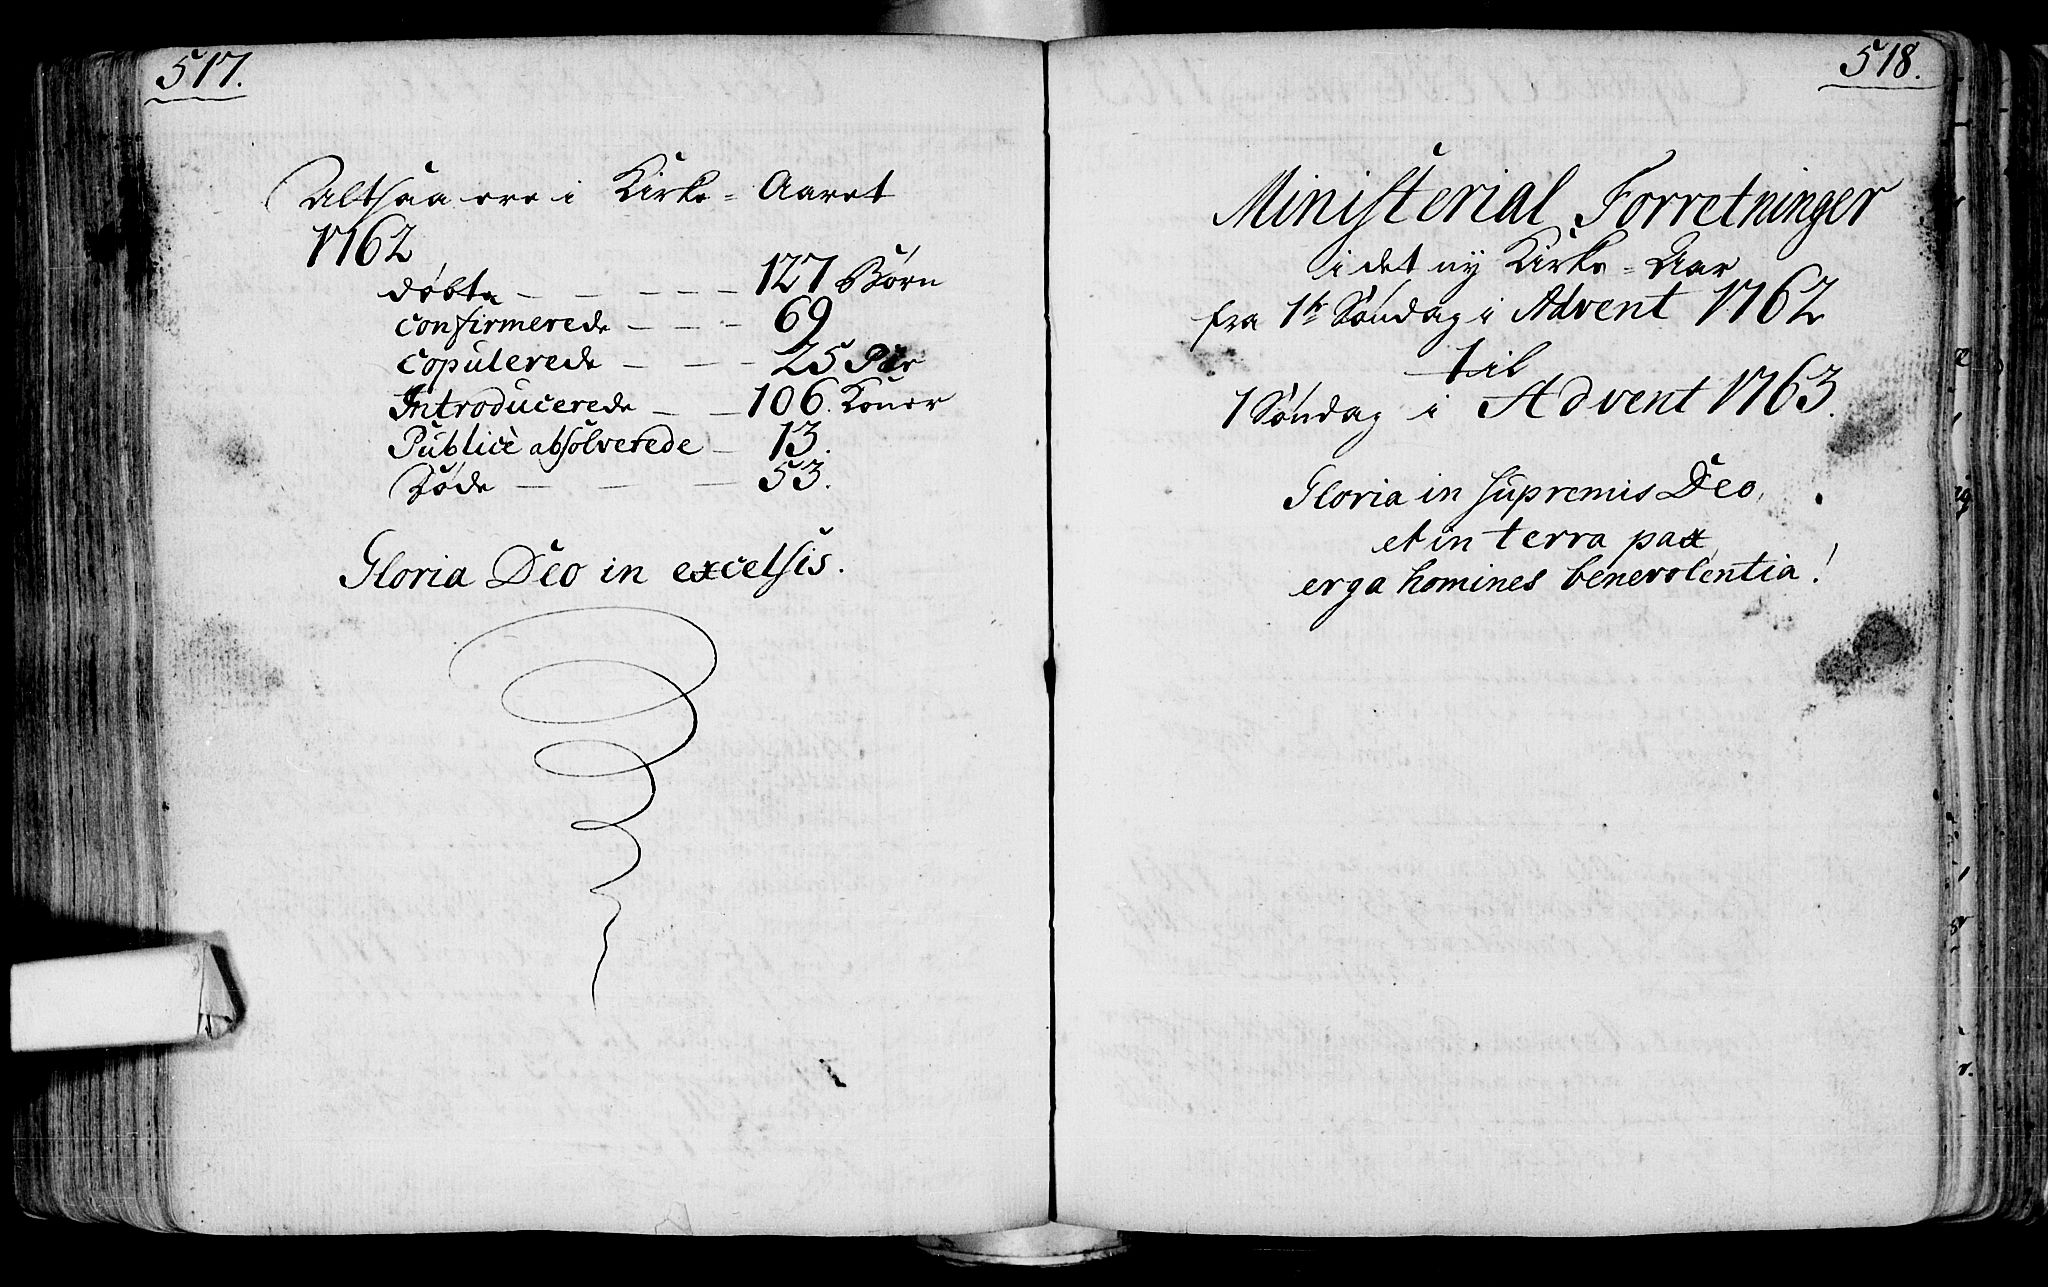 517.
Altsaa ere i Kirke-Aaret
1762
døbte - - - - - 127 Børn
confirmerede - - - 69
copulerede - - - 25 Par
Introducerede - - 106. Koner
Publicè absolverede - 13.
Døde - - - 53.
Gloria Deo in excelsis.
518.
Ministerial Forretninger
i det ny Kirke-Aar
fra 1te Søndag i Advent 1762
til
1 Søndag i Advent 1763.
Gloria in supremis Deo,
et in terra pax,
erga homines benevolentia!